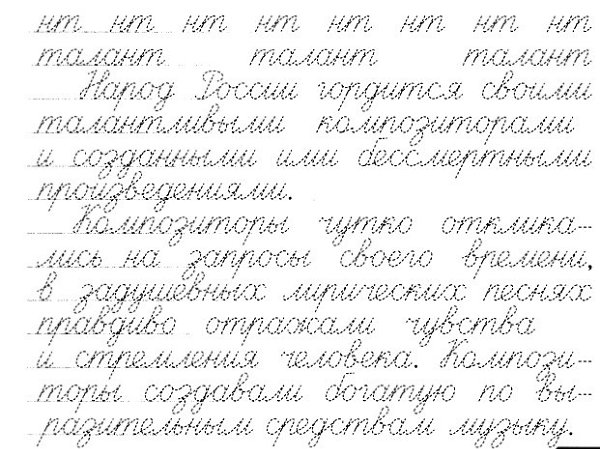 нт нт нт нт нт нт нт нт
талант талант талант
Народ России гордится своими
талантливыми композиторами
и созданными ими бессмертными
произведениями.
Композиторы чутко отклика-
лись на запросы своего времени,
в задушевных лирических песнях
правдиво отражали чувства
и стремления человека. Компози-
торы создавали богатую по вы-
разительным средствам музыку.